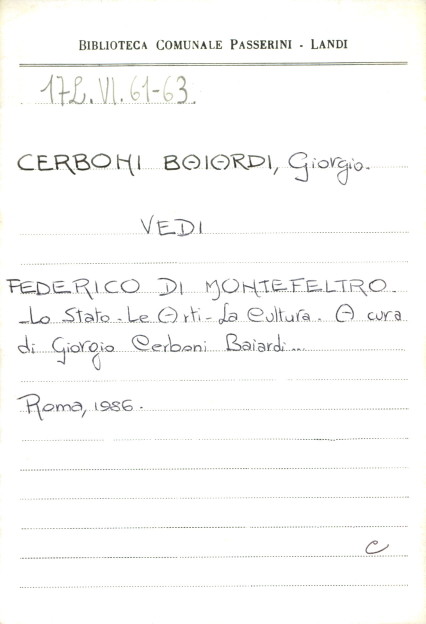 BIBLIOTECA COMUNALE PASSERINI - LANDI
17L.VI.61-63
CERBONI BAIARDI, Giorgio.
VEDI
FEDERICO DI MONTEFELTRO.
Lo Stato - Le Arti - La Cultura. A cura
di Giorgio Cerboni Baiardi...
Roma, 1986.
C